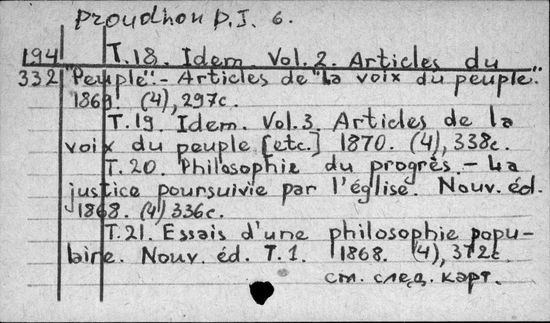 Proudhon P.J. 6.
194 T.18. Idem. Vol.2. Articles du
332 "Peuple".- Articles de "La voix du peuple".
1869. (4), 297c.
T.19. Idem. Vol.3. Articles de la
voix du peuple [etc.] 1870. (4), 338c.
T.20. Philosophie du progrès.- La
justice poursuivie par l'église. Nouv. éd.
1868. (4) 336c.
T.21. Essais d'une philosophie popu-
laire. Nouv. éd. T.1. 1868. (4), 372c.
см. след. карт.